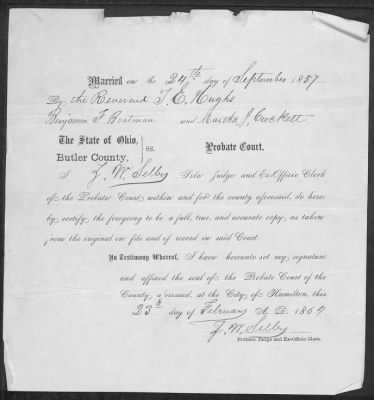 Married on the 24th day of September 1857
By the Reverend T. E. Hughs
Benjamin F Bratman and Martha J, Crockett
The State of Ohio, } ss. Probate Court.
Butler County,
I Z. W. Selby Sole Judge and Ex-Officio Clerk
of the Probate Court within and for the county aforesaid, do here-
by certify the foregoing to be a full, true, and accurate copy, as taken
from the original on file and of record in said Court.
In Testimony Whereof, I have hereunto set my signature
and affixed the seal of the Probate Court of the
County aforesaid, at the City of Hamilton, this
23d day of February A. D. 1869
Z. W. Selby
Probate Judge and Ex-Officio Clerk.